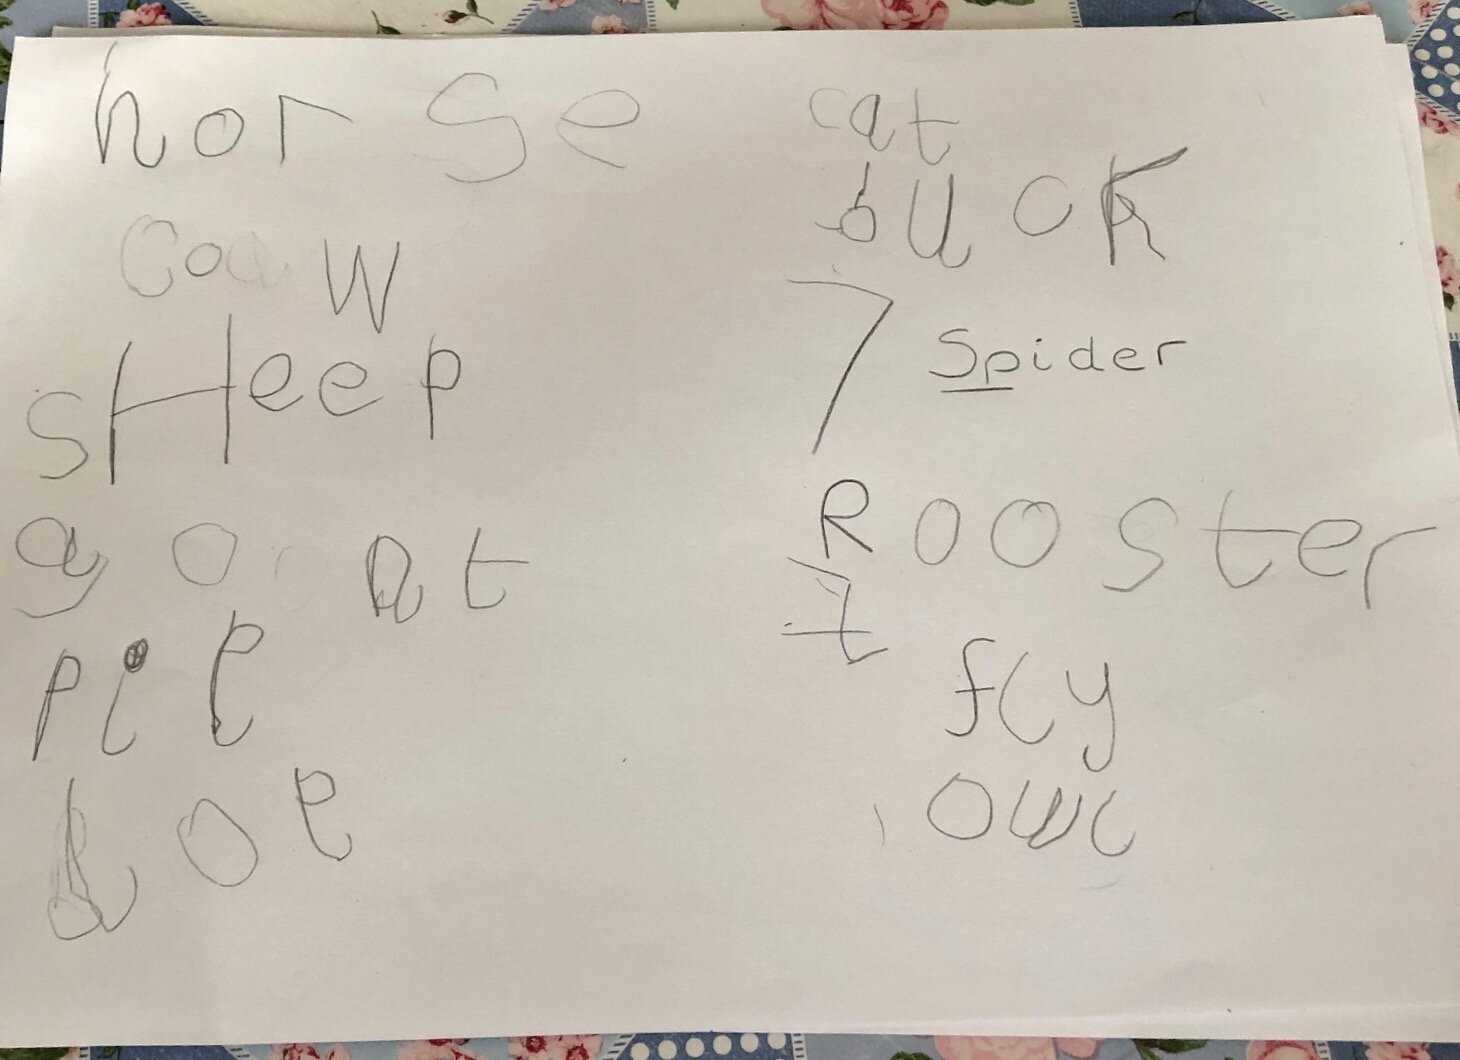 horse
cow
sHeep
goat
Pig
dog
cat
duck
7 Spider
Rooster
fly
owl